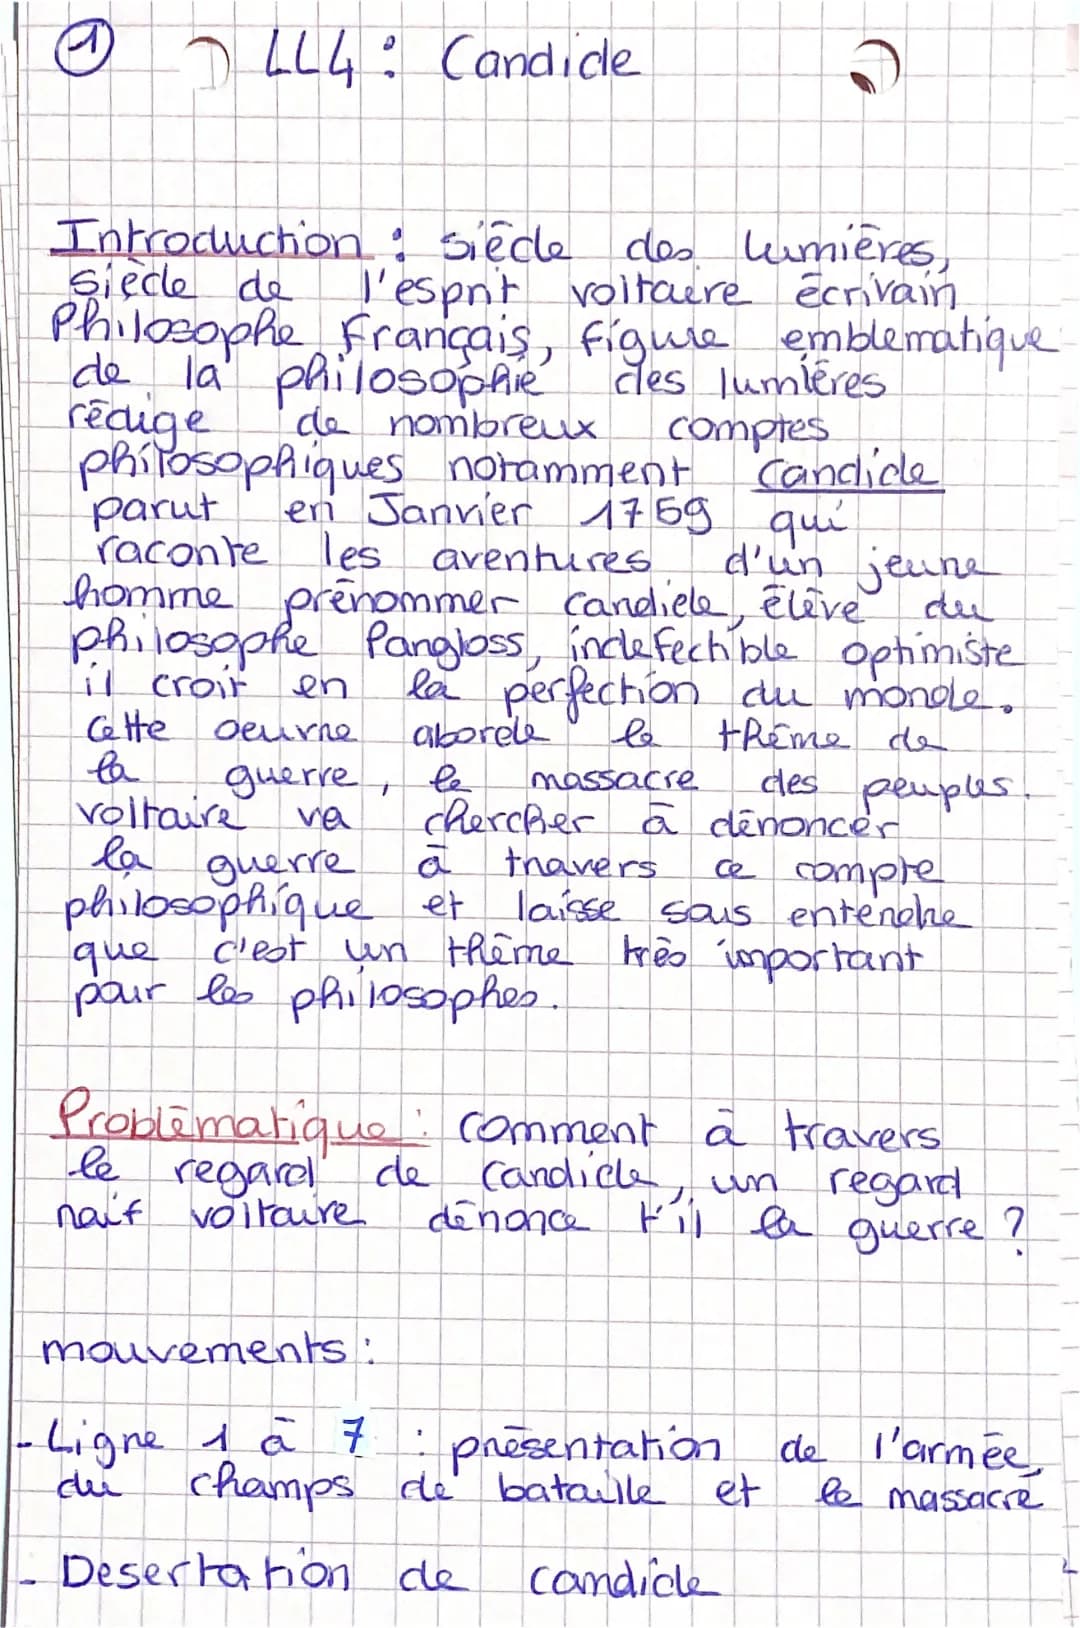 1 LL4 : Candide
Introduction : siècle des lumières,
siècle de l'esprit voltaire écrivain
Philosophe Français, figure emblematique
de la philosophie des lumières
rédige de nombreux comptes
philosophiques notamment Candide
parut en Janvier 1759 qui
raconte les aventures d'un jeune
homme prénommer Candide, élève du
philosophe Pangloss, indefectible optimiste
il croit en la perfection du monde.
Cette oeuvre aborde le thème de
la guerre, le massacre des peuples.
voltaire va chercher à dénoncer
la guerre à travers ce compte
philosophique et laisse sous entendre
que c'est un thème très important
pour les philosophes.
Problématique : Comment à travers
le regard de Candide, un regard
naif voltaire dénonce t'il la guerre ?
mouvements :
- Ligne 1 à 7 : présentation de l'armée,
du champs de bataille et le massacre
- Desertation de candide